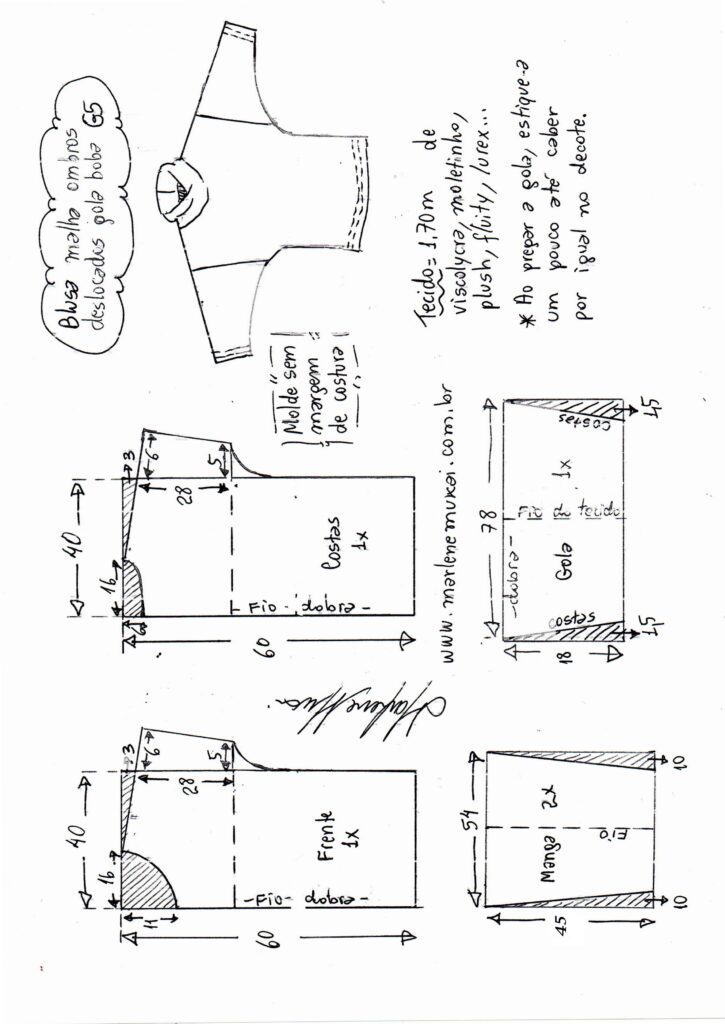 Blusa malha ombros
deslocados gola boba G5
40
16
3
6
28
5
11
60
Frente
1x
-Fio- dobra-
40
16
3
6
28
5
60
Costas
1x
Fio - dobra -
Molde sem
margem
de costura
www.marlenemukai.com.br
54
Manga 2x
Fio
45
10
10
78
-dobra-
costas
costas
Gola 1x
Fio do tecido
18
1,5
1,5
Tecido = 1,70m de
viscolycra, moletinho,
plush, fluity, lurex...
* Ao pregar a gola, estique-a
um pouco até caber
por igual no decote.